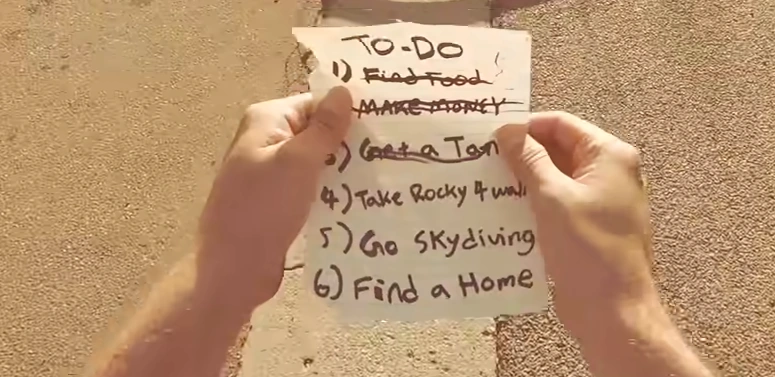 TO-DO
1) Find Food
MAKE MONEY
3) Get a Tan
4) Take Rocky 4 walk
5) Go Skydiving
6) Find a Home